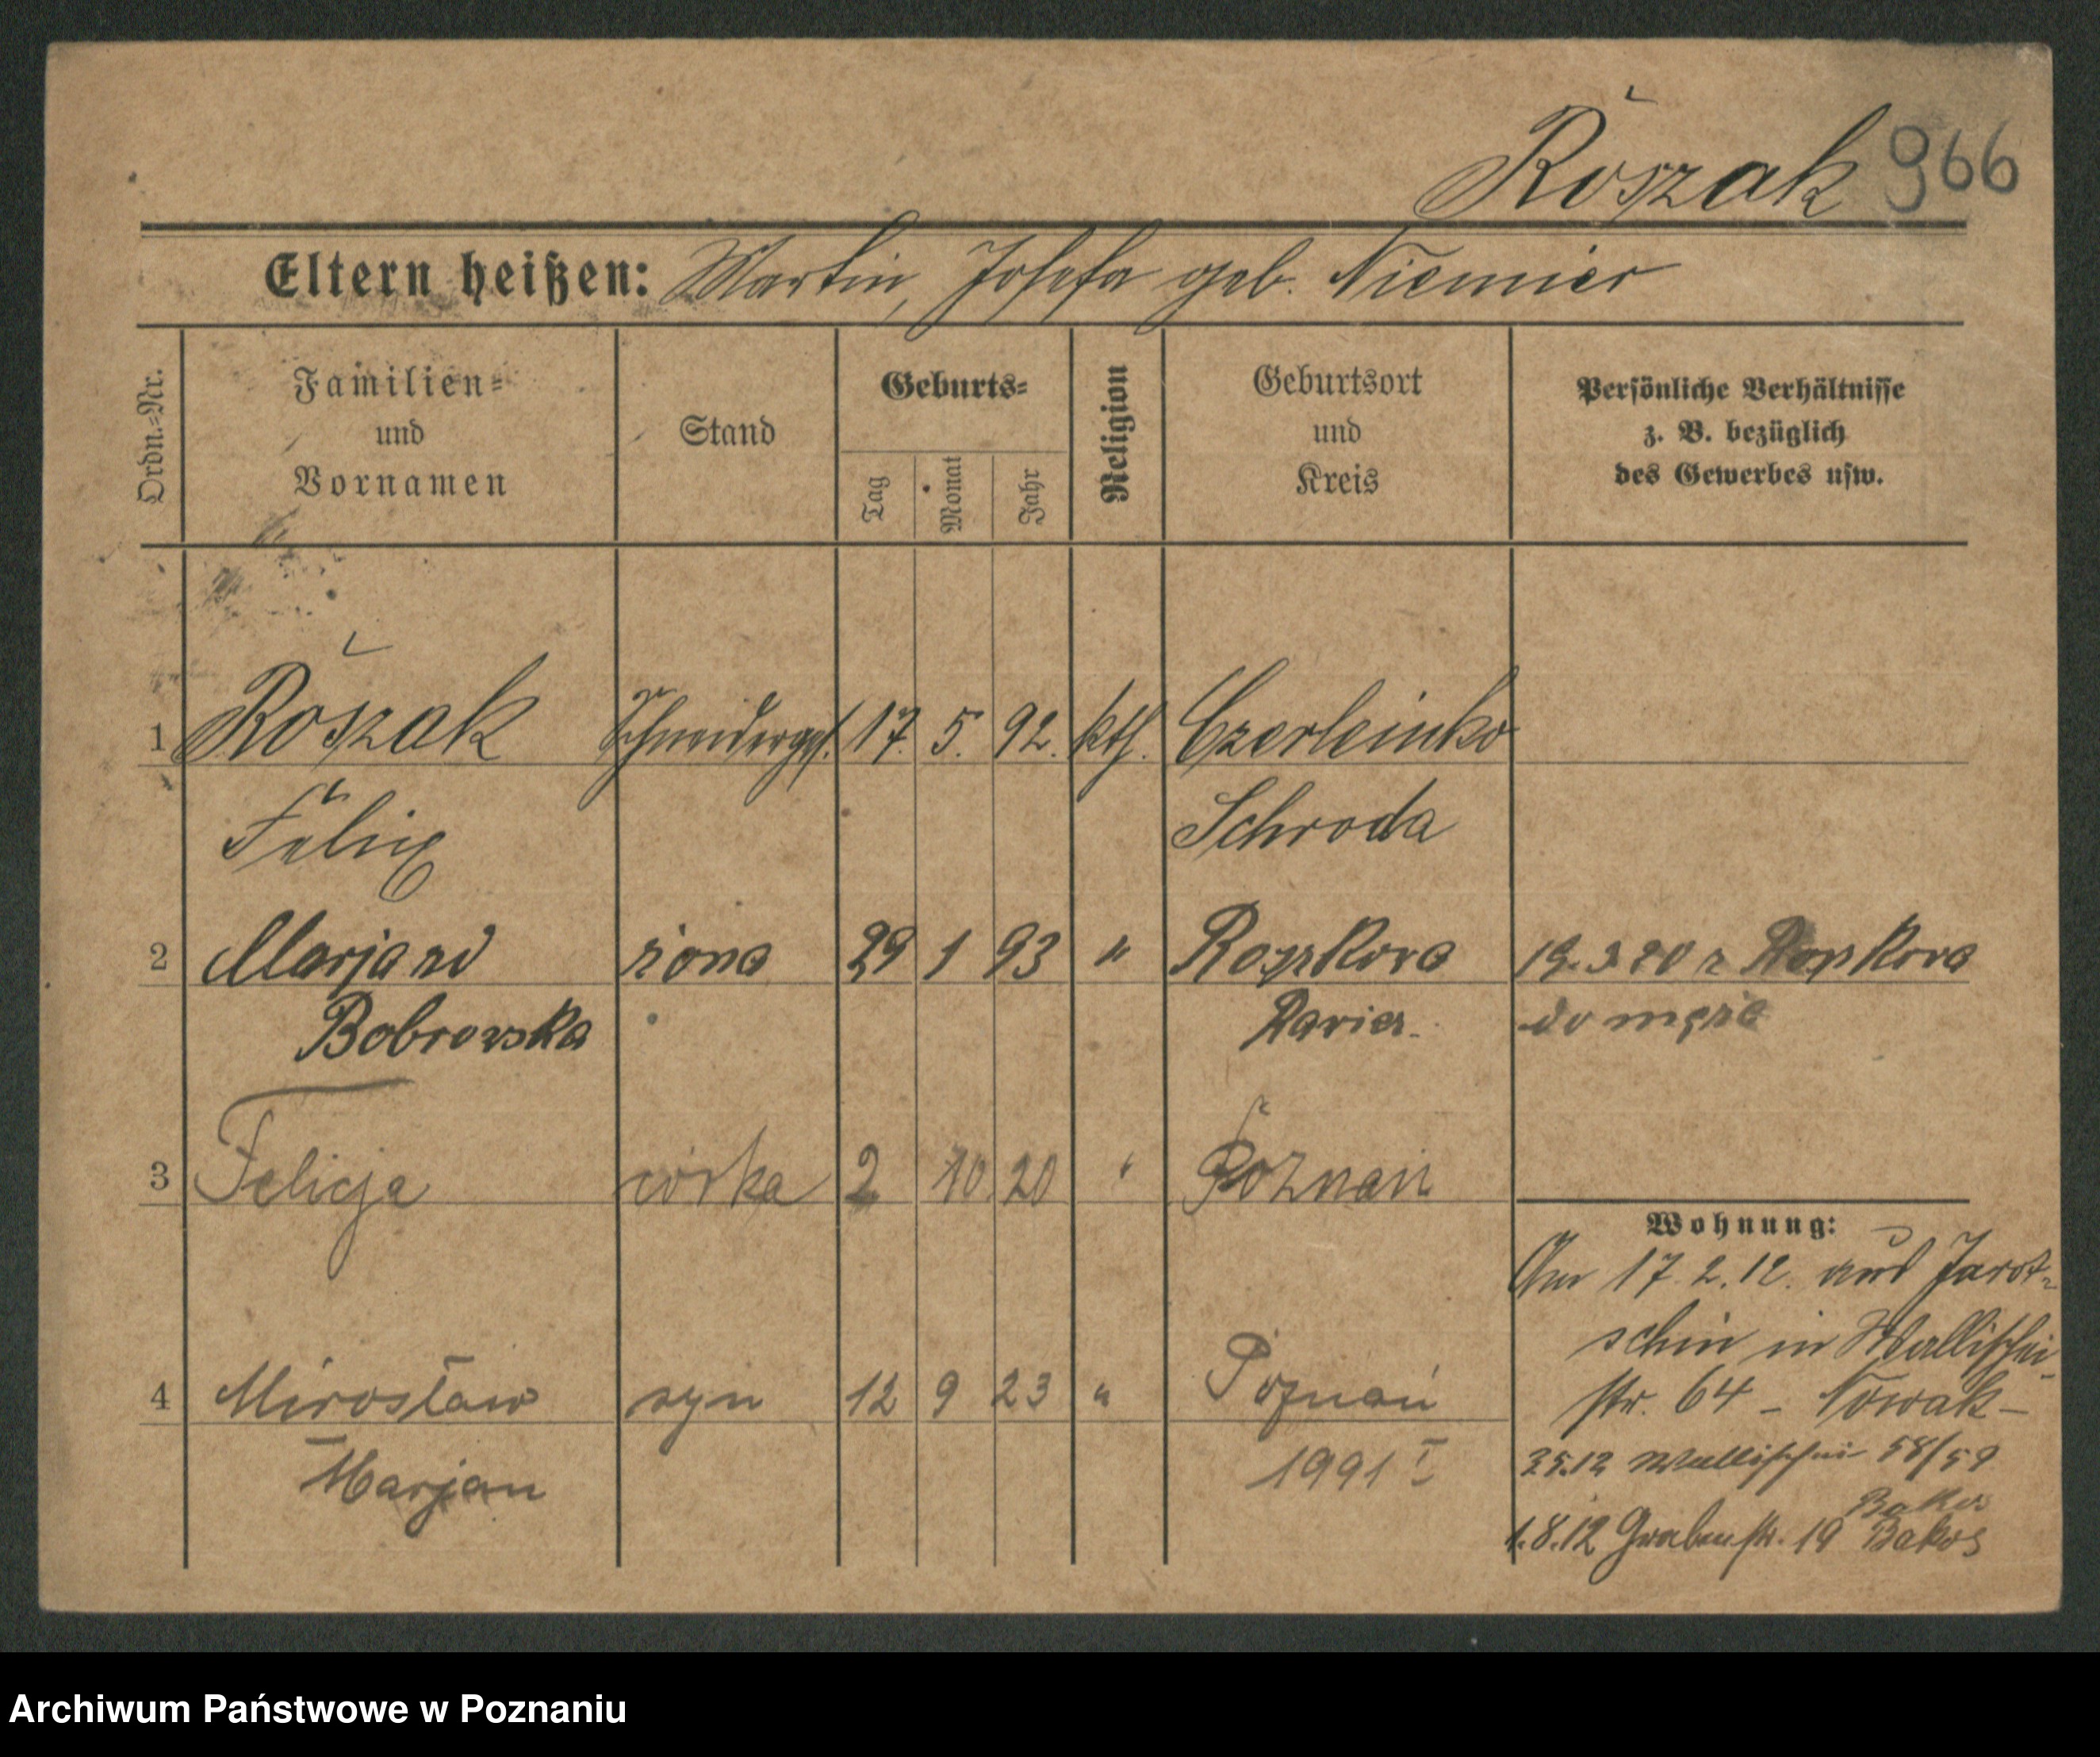 Rószak 966
Eltern heißen: Martin, Josefa geb. Niemier
Ordn.-Nr.
Familien-
und
Vornamen
Stand
Geburts-
Tag
Monat
Jahr
Religion
Geburtsort
und
Kreis
Persönliche Verhältnisse
z. B. bezüglich
des Gewerbes usw.
1 Rószak Schneiderges. 17. 5. 92. kth. Czerleinko
Felix Schroda
2 Marjanna żona 29 1 93 " Roszkowo 19.3.20 z Roszkowa
Bobrowska do męża
3 Felicja córka 2 10 20 " Poznań
Wohnung:
Am 17.2.12. aus Jarot-
schin in Wallischei
4 Mirosław syn 12 9 23 " Poznań
str. 64 - Nowak -
Marjan 1991 I
25.12 Wallischei 58/59
Bakos
1.8.12 Grabenstr. 19 Bakos
Archiwum Państwowe w Poznaniu